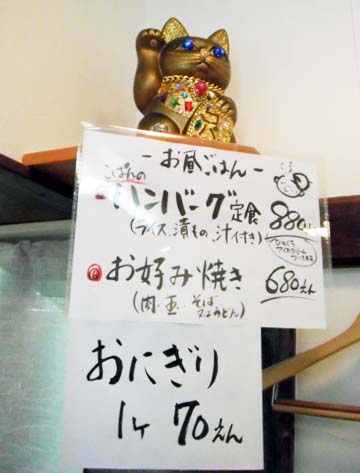 －お昼ごはん－
こぱんの
ハンバーグ定食 880えん
(ライス、漬もの、汁付き)
お好み焼き 680えん
(肉・玉・そば
又はうどん)
おにぎり
1ヶ 70えん